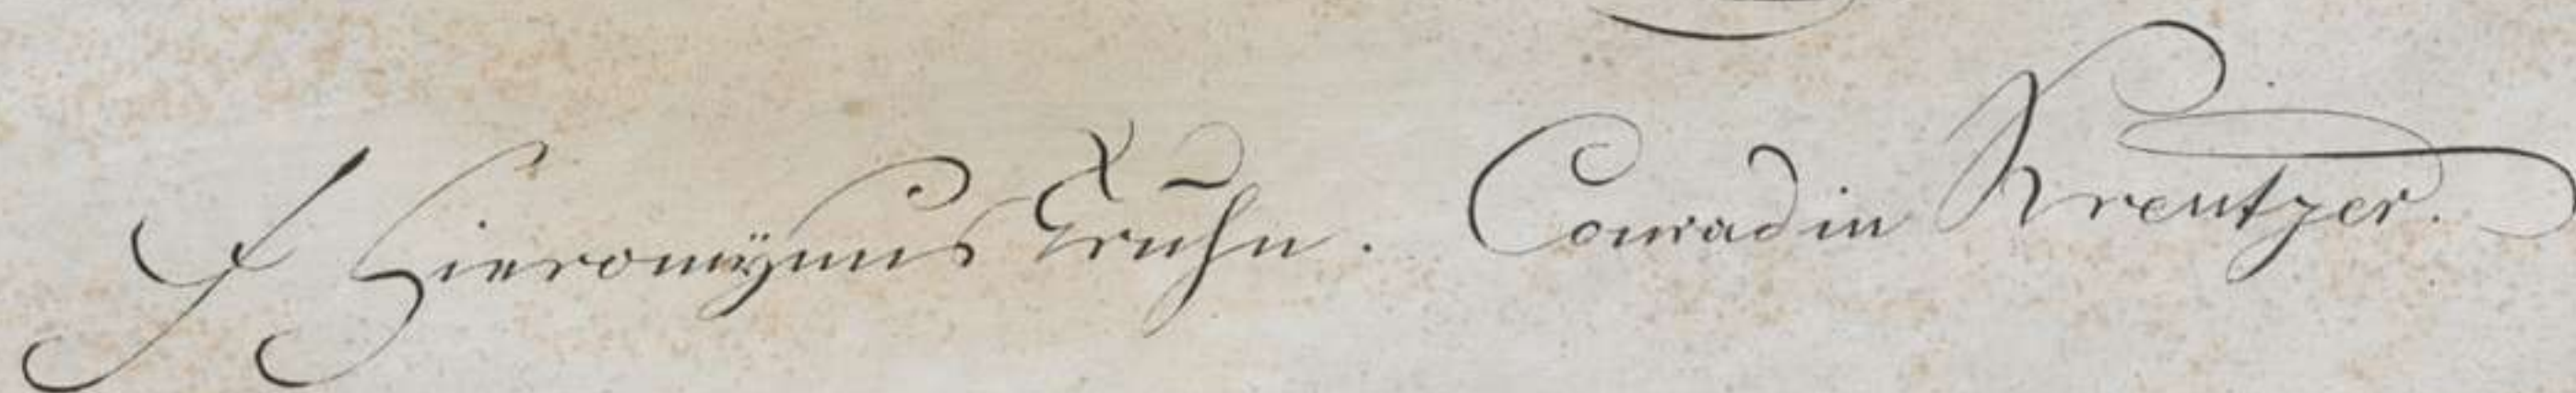 F Hieronÿmus Truhn. Conradin Kreutzer.